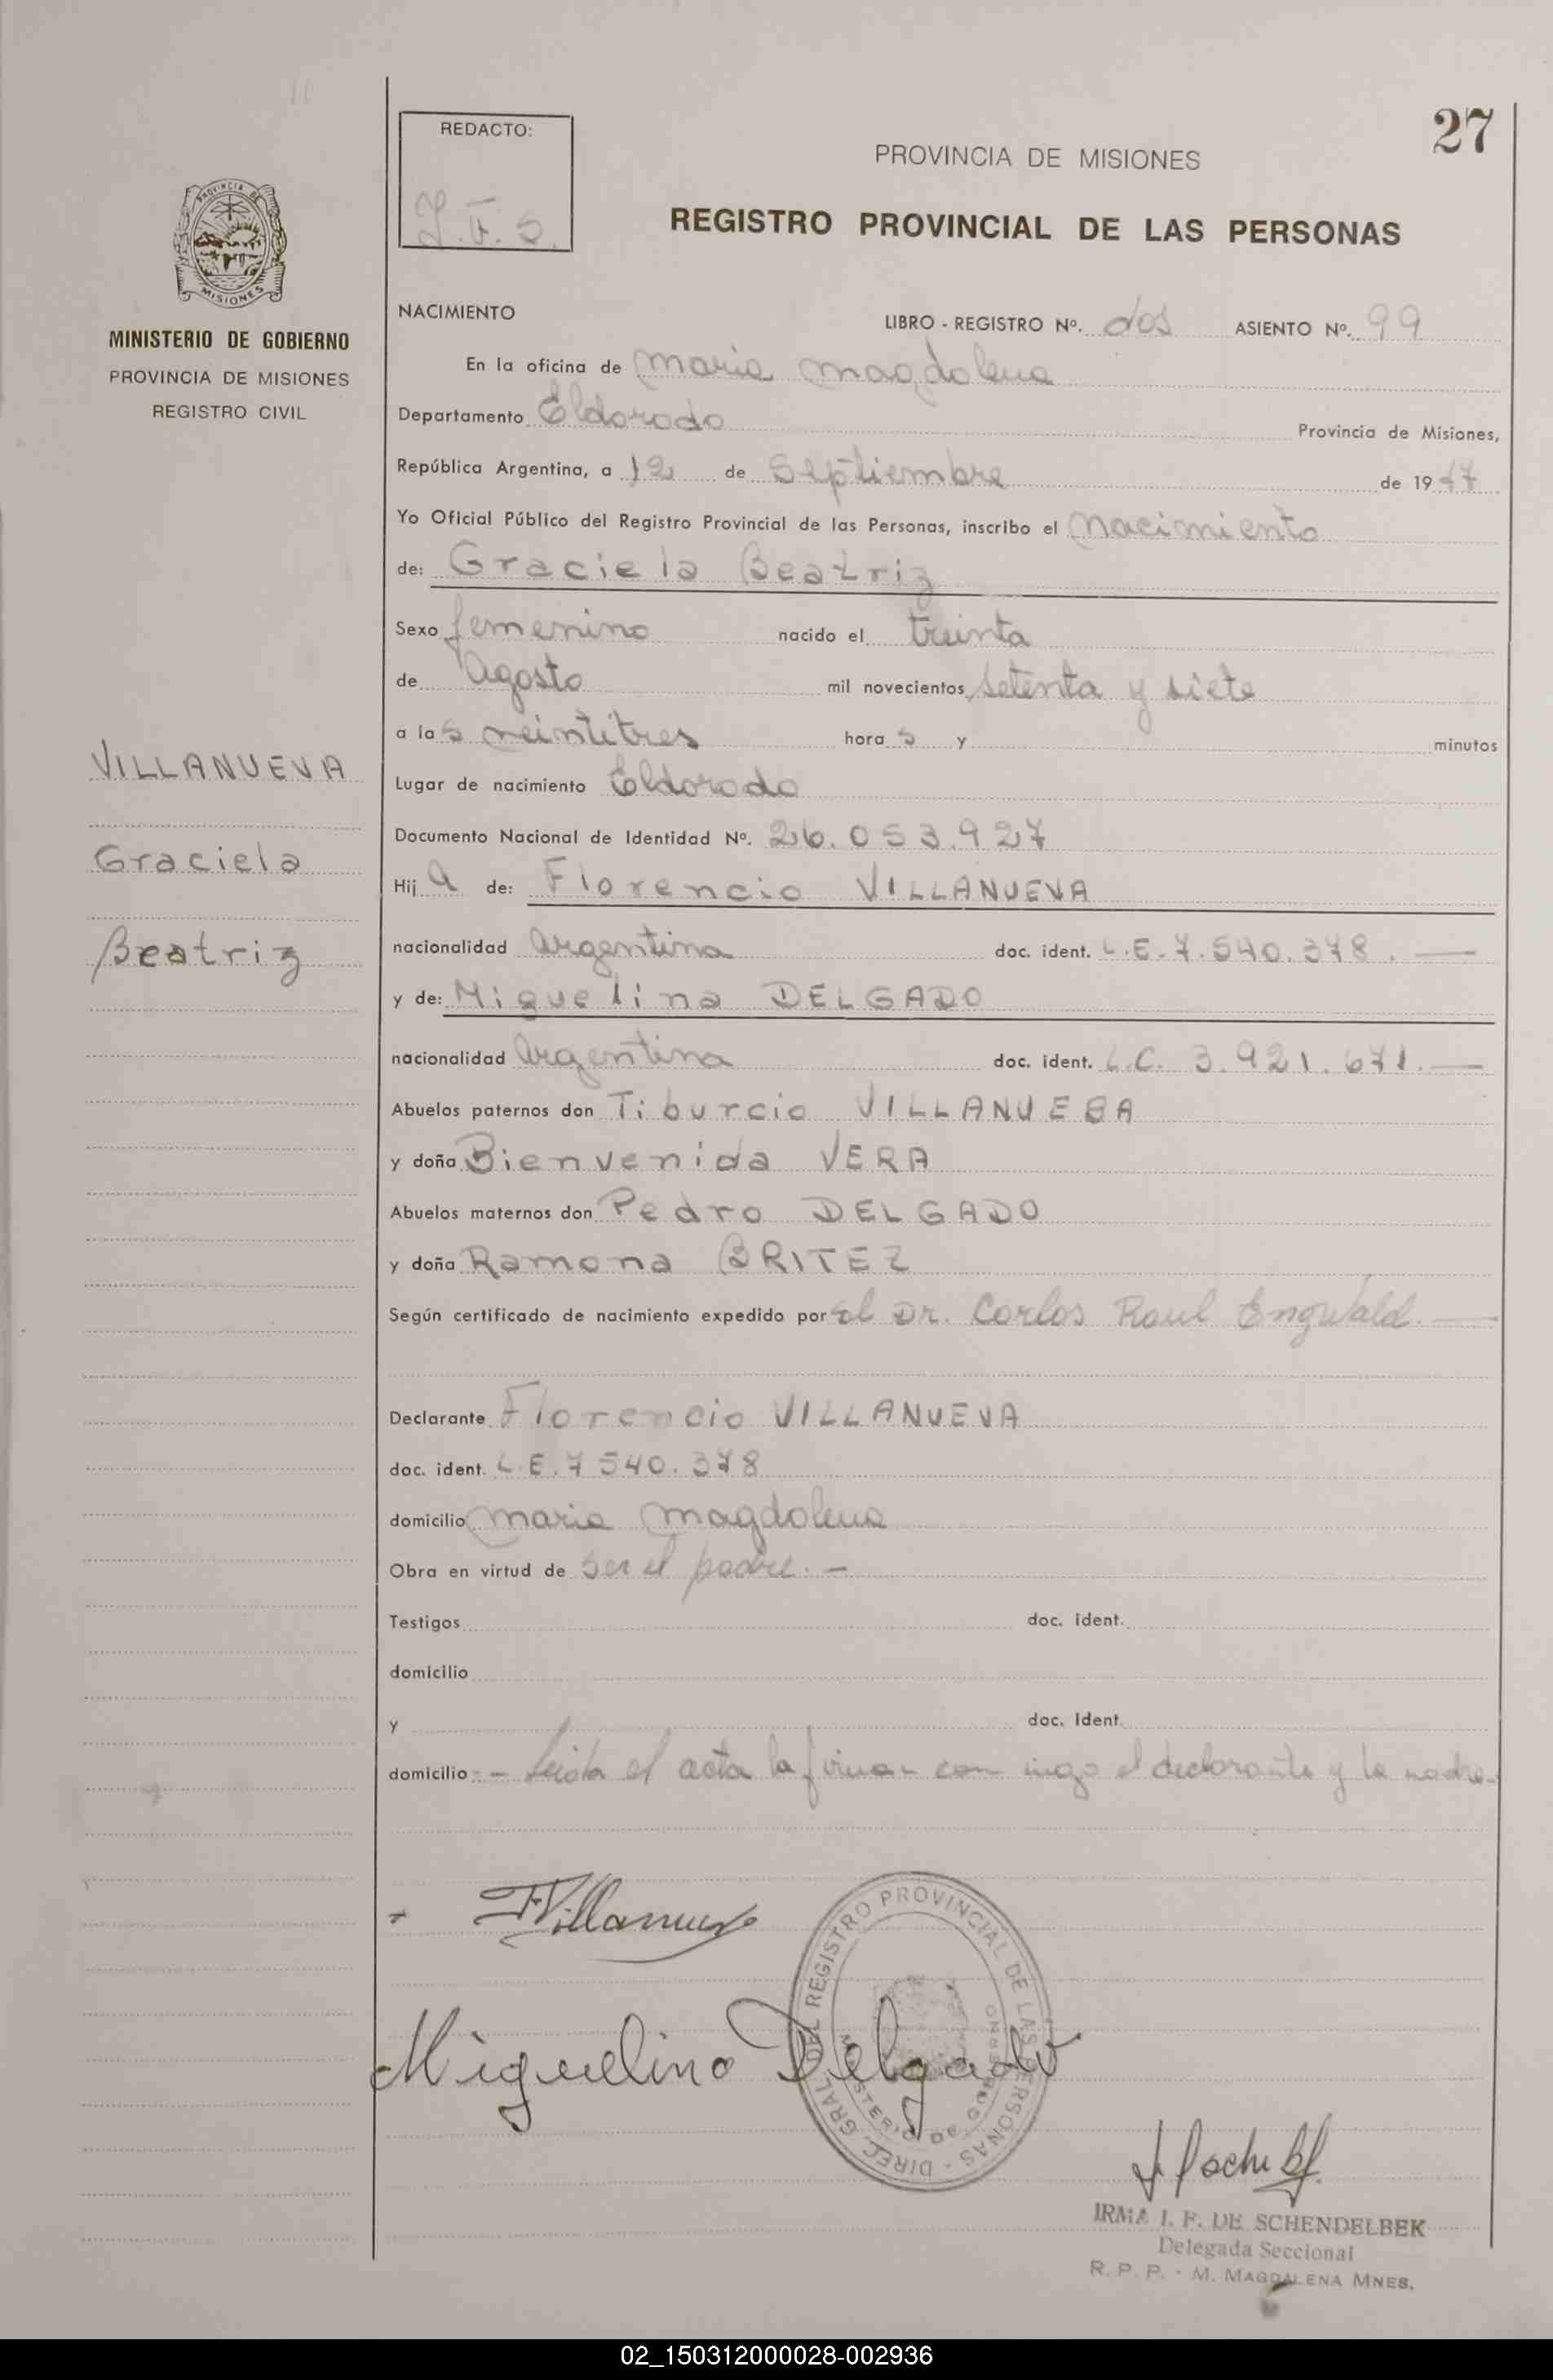 27
REDACTO:
PROVINCIA DE MISIONES
REGISTRO PROVINCIAL DE LAS PERSONAS
PROVINCIA DE
MISIONES
MINISTERIO DE GOBIERNO
PROVINCIA DE MISIONES
REGISTRO CIVIL
VILLANUEVA
Graciela
Beatriz
NACIMIENTO
LIBRO - REGISTRO Nº. dos ASIENTO Nº. 99
En la oficina de Maria Magdalena
Departamento Eldorado Provincia de Misiones,
República Argentina, a 12 de Septiembre de 1977
Yo Oficial Público del Registro Provincial de las Personas, inscribo el Nacimiento
de: Graciela Beatriz
Sexo femenino nacido el treinta
de Agosto mil novecientos setenta y siete
a las veintitres horas y minutos
Lugar de nacimiento Eldorado
Documento Nacional de Identidad Nº. 26.053.927
Hija de: Florencio VILLANUEVA
nacionalidad Argentina doc. ident. L.E.7.540.378.
y de: Miguelina DELGADO
nacionalidad Argentina doc. ident. L.C. 3.921.671.
Abuelos paternos don Tiburcio VILLANUEBA
y doña Bienvenida VERA
Abuelos maternos don Pedro DELGADO
y doña Ramona BRITEZ
Según certificado de nacimiento expedido por El Dr. Carlos Raul Engwald.
Declarante Florencio VILLANUEVA
doc. ident. L.E.7 540.378
domicilio Maria Magdalena
Obra en virtud de ser el padre.-
Testigos doc. ident.
domicilio
y doc. Ident.
domicilio - Leida el acta la firman con migo el declarante y la madre-
FVillanueva
Miguelina Delgado
DIREC. GRAL. DEL REGISTRO PROVINCIAL DE LAS PERSONAS -
MINISTERIO DE GOBIERNO
IRMA I. F. DE SCHENDELBEK
Delegada Seccional
R. P. P. - M. MAGDALENA MNES.
02_150312000028-002936